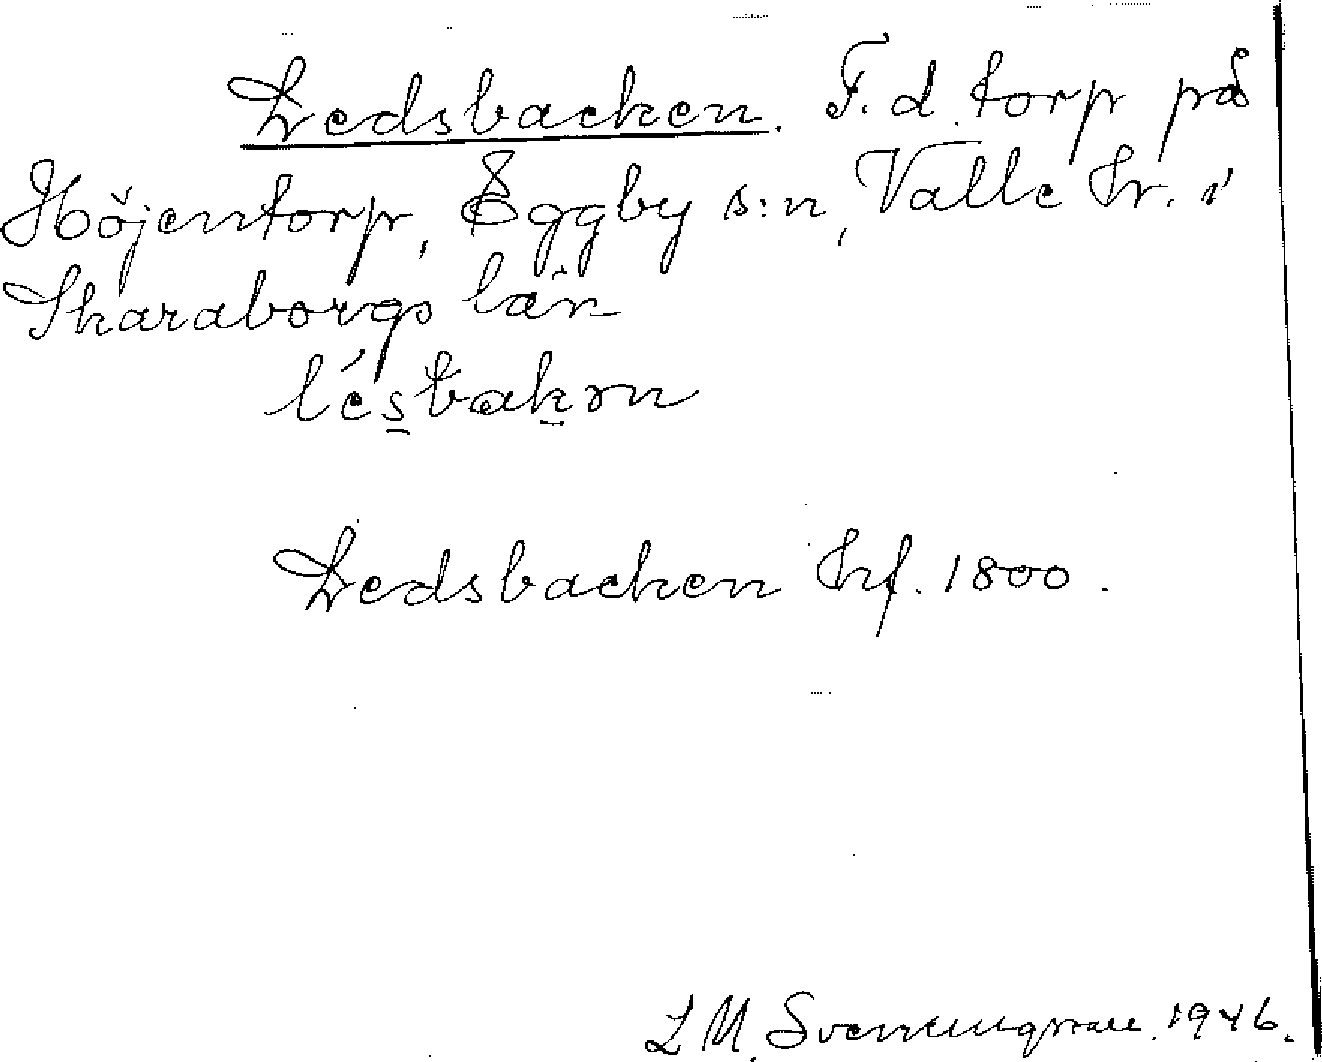 Ledsbacken. F.d. torp på
Höjentorp, Eggby s:n, Valle hr. i
Skaraborgs län
léstbakɘn
Ledsbacken hfl. 1800.
L M. Svenungsson. 1946.